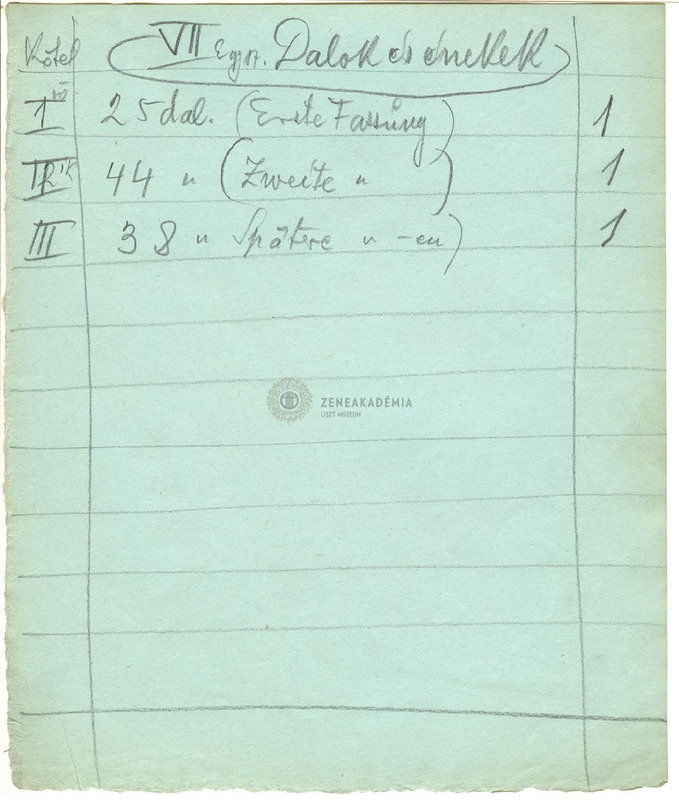 Kötet VII Egysz. Dalok és énekek
I 25 dal. (Erste Fassung) 1
II 44 " (Zweite " ) 1
III 38 " Spätere " -en) 1
ZENEAKADÉMIA
LISZT MÚZEUM